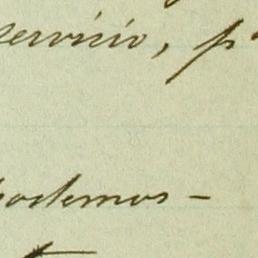 servicio, p
podemos-